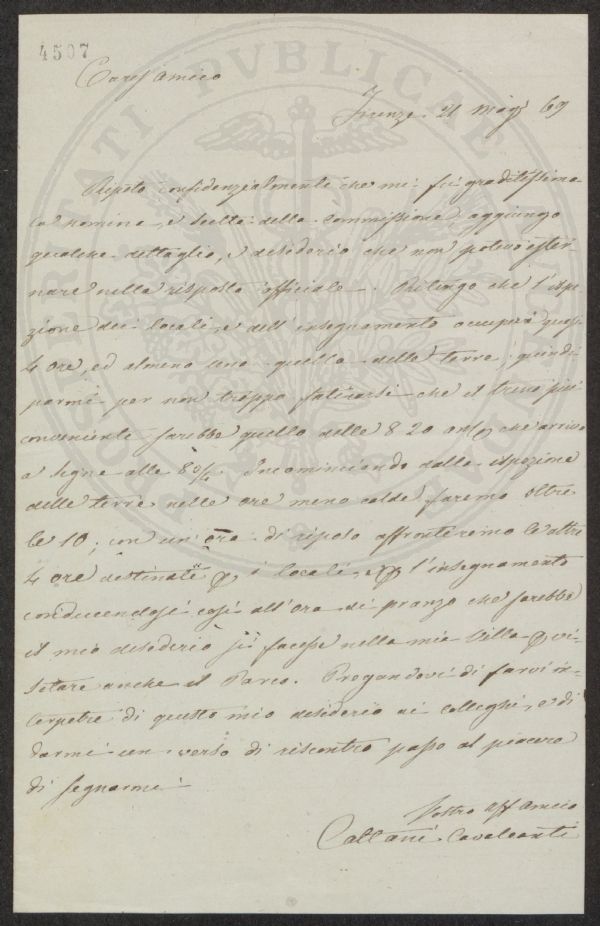 4507
Cariss. Amico
Firenze 21 Magg. 69
Ripeto confidenzialmente che mi fù graditissima
la nomina, e scelta della Commissione, aggiungo
qualche dettaglio, e desiderio che non potevo ester-
nare nella risposta officiale. Ritengo che l'ispe-
zione dei locali, e dell'insegnamento occuperà quasi
4 ore, ed almeno una quella delle terre; quindi
parmi per non troppo faticarsi che il treno più
conveniente sarebbe quello delle 8 20 ant. che arriva
a Signe alle 8 3/4. Incominciando dalla ispezione
delle terre nelle ore meno calde saremo oltre
le 10; con un'ora di riposo affronteremo le altre
4 ore destinate p. i locali, e p. l'insegnamento
conducendosi così all'ora di pranzo che sarebbe
il mio desiderio si facesse nella mia Villa p. vi-
sitare anche il Parco. Pregandovi di farvi in-
terpetre di questo mio desiderio ai colleghi, e di
darmi un verso di riscontro passo al piacere
di segnarmi
Vostro aff Amico
Cattani Cavalcanti
PROSPERITATI PVBLICAE AVGENDAE